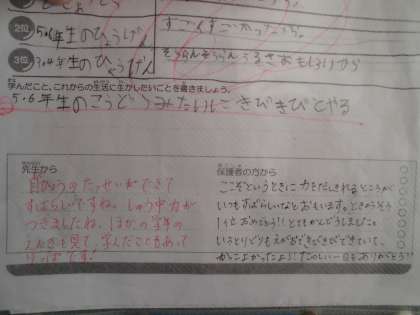 2位 5・6年生のひょうげん
すごくすごかったから。
3位 3・4年生のひょうげん
そうらんそうらんうるさおもしろいから
学んだこと、これからの生活に生かしたいことを書きましょう。
5・6年生のこうどうみたいにきびきびとやる
先生から
目ひょうのたっせいができて
すばらしいですね。しゅう中力が
つきましたね。ほかの学年の
えんぎも見て、学んだこともあって
りっぱです!
保護者の方から
ここぞというときに力をだしきれるところが
いつもすばらしいなとおもいます。ときょうそう
1位おめでとう!!とてもかんどうしました。
いろとりどりもえがおできびきびできていて、
かっこよかったよ!たのしい一日をありがとう♡